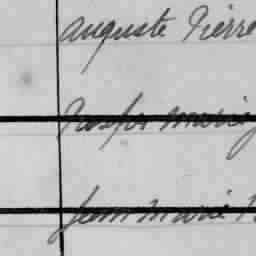 Auguste Pierre
Joseph Marie
Jean Marie